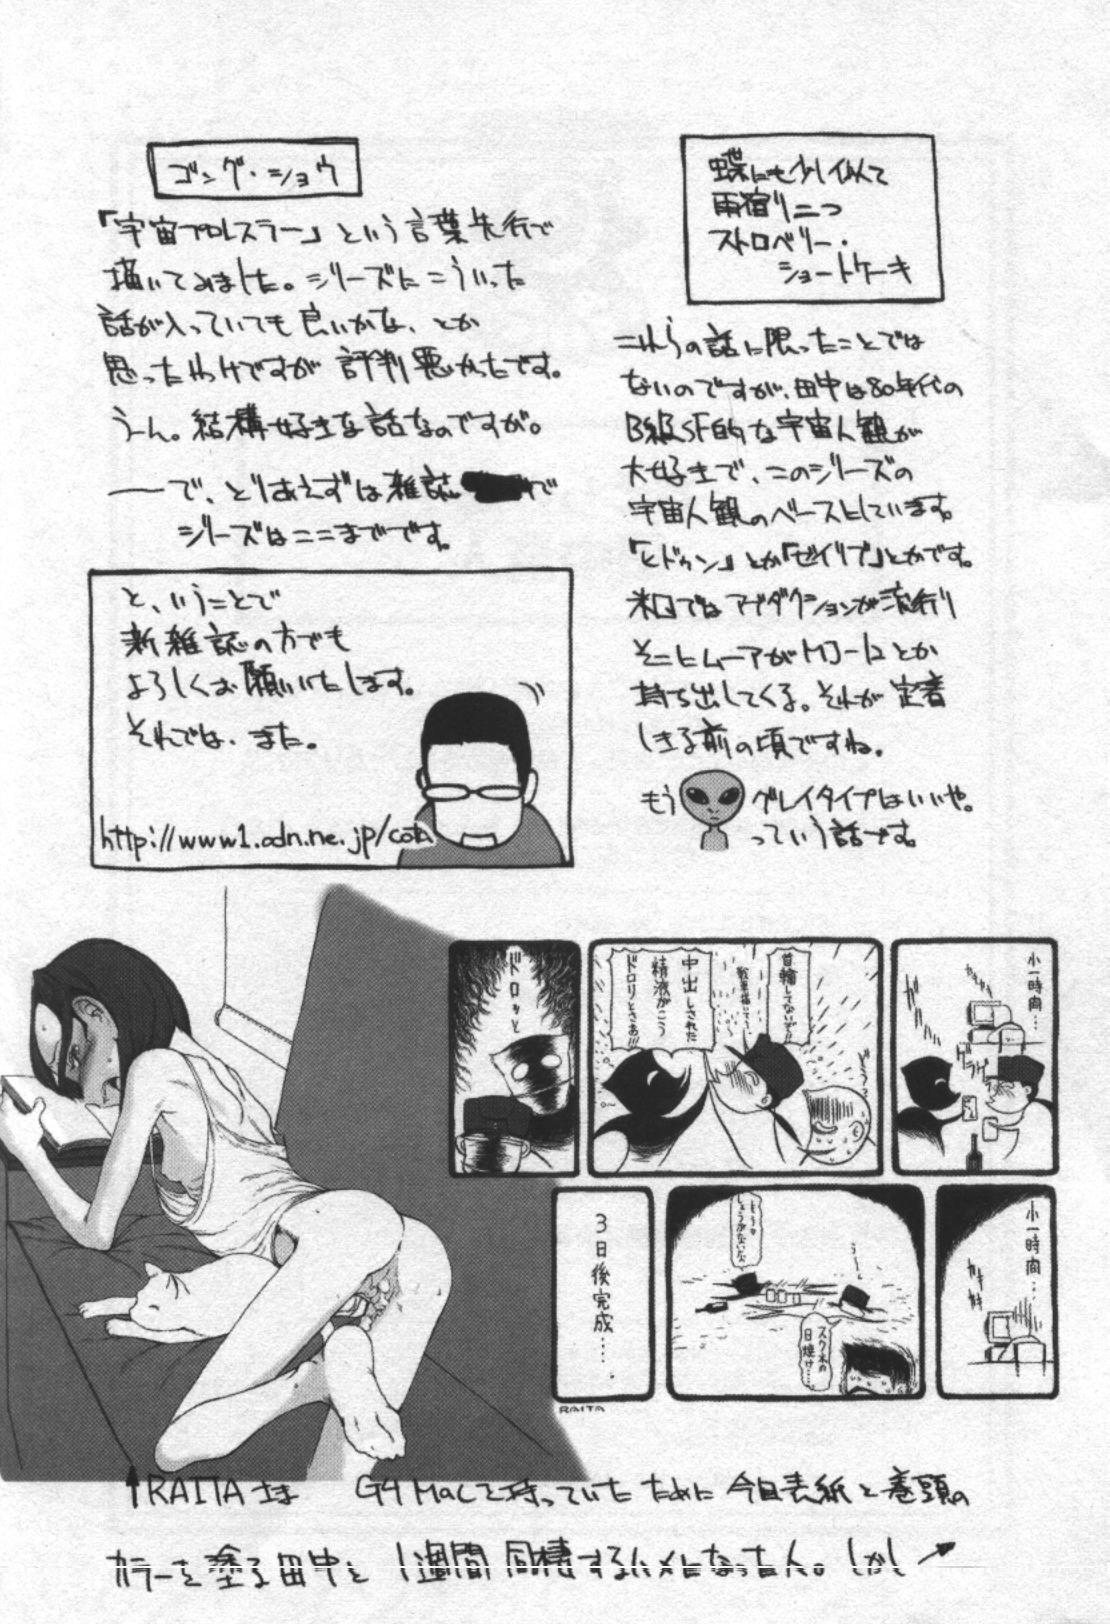 蝶にも少し似て
雨宿り二つ
ストロベリー・
ショートケーキ
これらの話に限ったことでは
ないのですが、田中は80年代の
B級SF的な宇宙人観が
大好きで、このシリーズの
宇宙人観のベースとしています。
「ヒドゥン」とか「ゼイリブ」とかです。
米国ではアブダクションが流行り
そこにムーアがMJ-12とか
持ち出してくる。それが定着
しきる前の頃ですね。
もう
グレイタイプはいいや。
っていう話です。
ゴング・ショウ
「宇宙プロレスラー」という言葉先行で
描いてみました。シリーズにこういった
話が入っていても良いかな、とか
思ったわけですが評判悪かったです。
うーん。結構好きな話なのですが。
――で、とりあえずは雑誌
で
シリーズはここまでです。
と、いうことで
新雑誌の方でも
よろしくお願いいたします。
それでは、また。
http://www1.odn.ne.jp/cota
小一時間…
ゲラゲラ
首輪してないぞ!!
中出しされた
精液がこう
ドロリとさぁ!!!
ドロッと
小一時間…
カキ
カキ
スク水の
日焼け…
3日後完成….
RAITA
↑RAITAさま
G4 Macを持っていたために今回表紙と巻頭の
カラーを塗る田中と1週間同棲するハメになった人。しかし